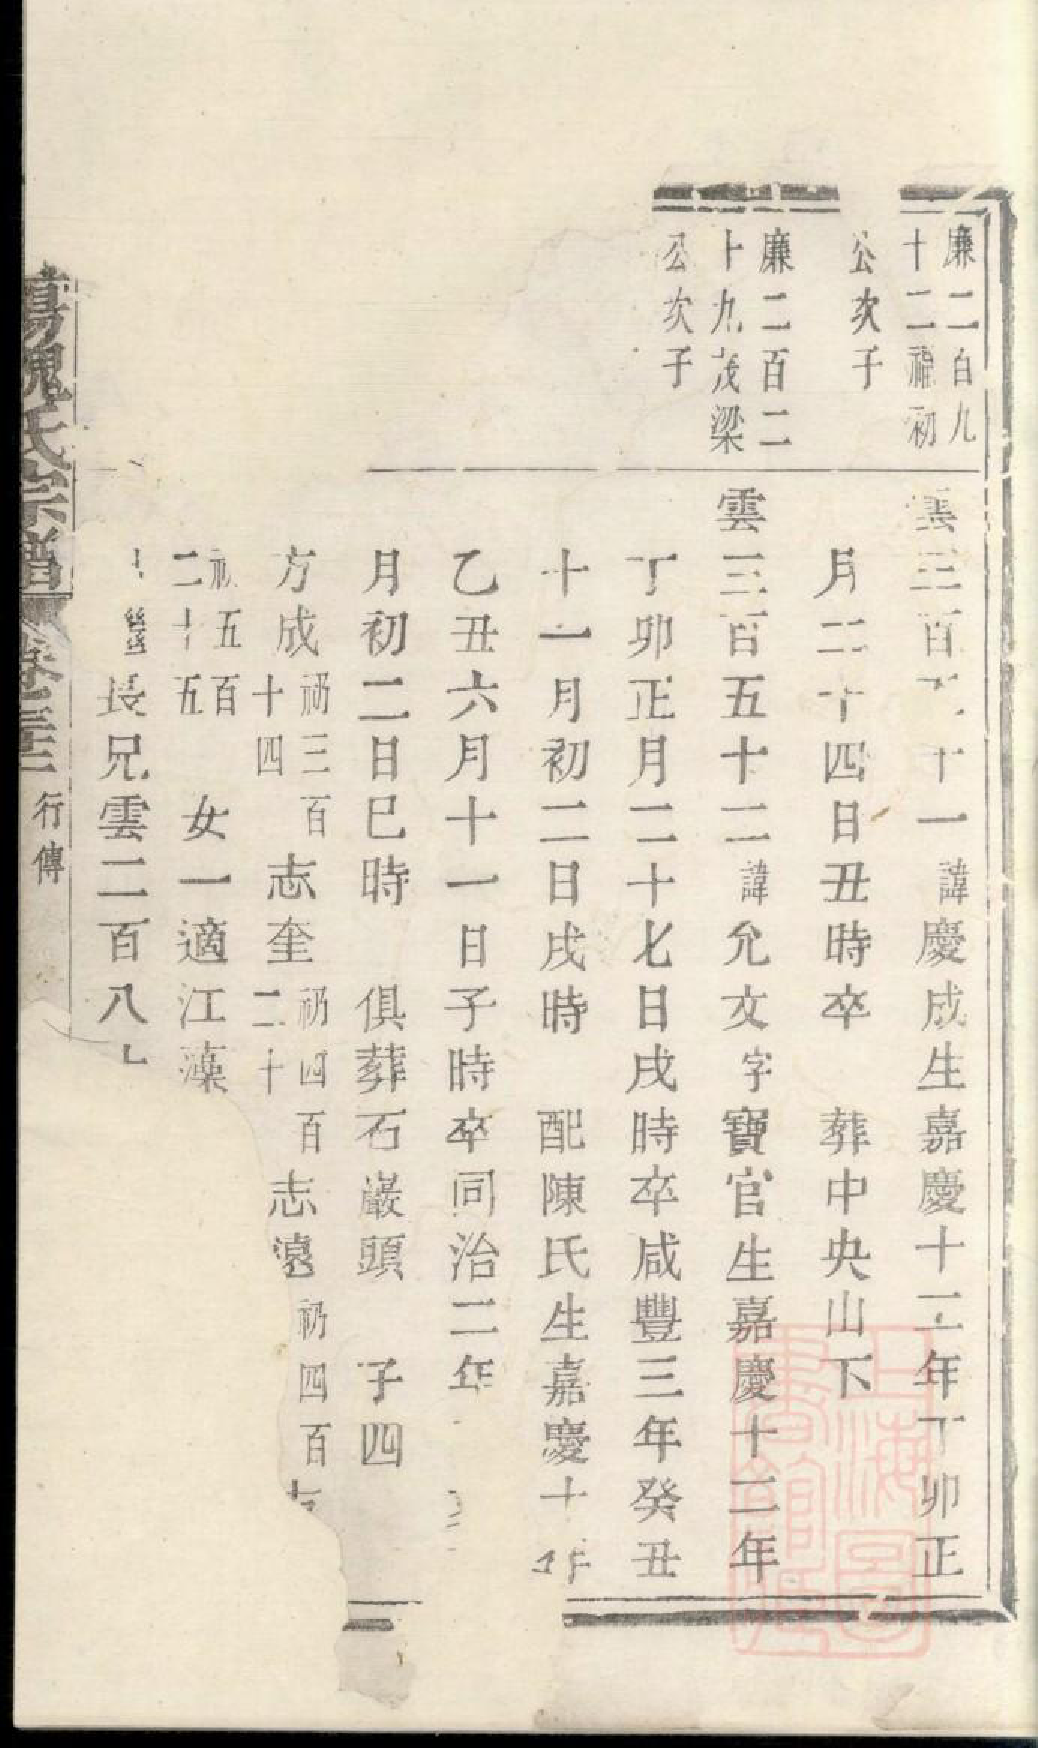 廉二百九
十二福初
公次子
雲三百五十一諱慶成生嘉慶十二年丁卯正
月二十四日丑時卒 葬中央山下
廉二百二
十九茂梁
公次子
雲三百五十二諱允文字寶官生嘉慶十二年
丁卯正月二十七日戌時卒咸豐三年癸丑
十一月初二日戌時 配陳氏生嘉慶十年
乙丑六月十一日子時卒同治二年
月初二日巳時 俱葬石巖頭 子四
方成 祊三百十四 志奎 祊四百二十 志遠 祊四百
五百二十五 女一適江藻
繼長兄雲二百八
魏氏宗譜 卷之三 行傳
上海圖書館藏